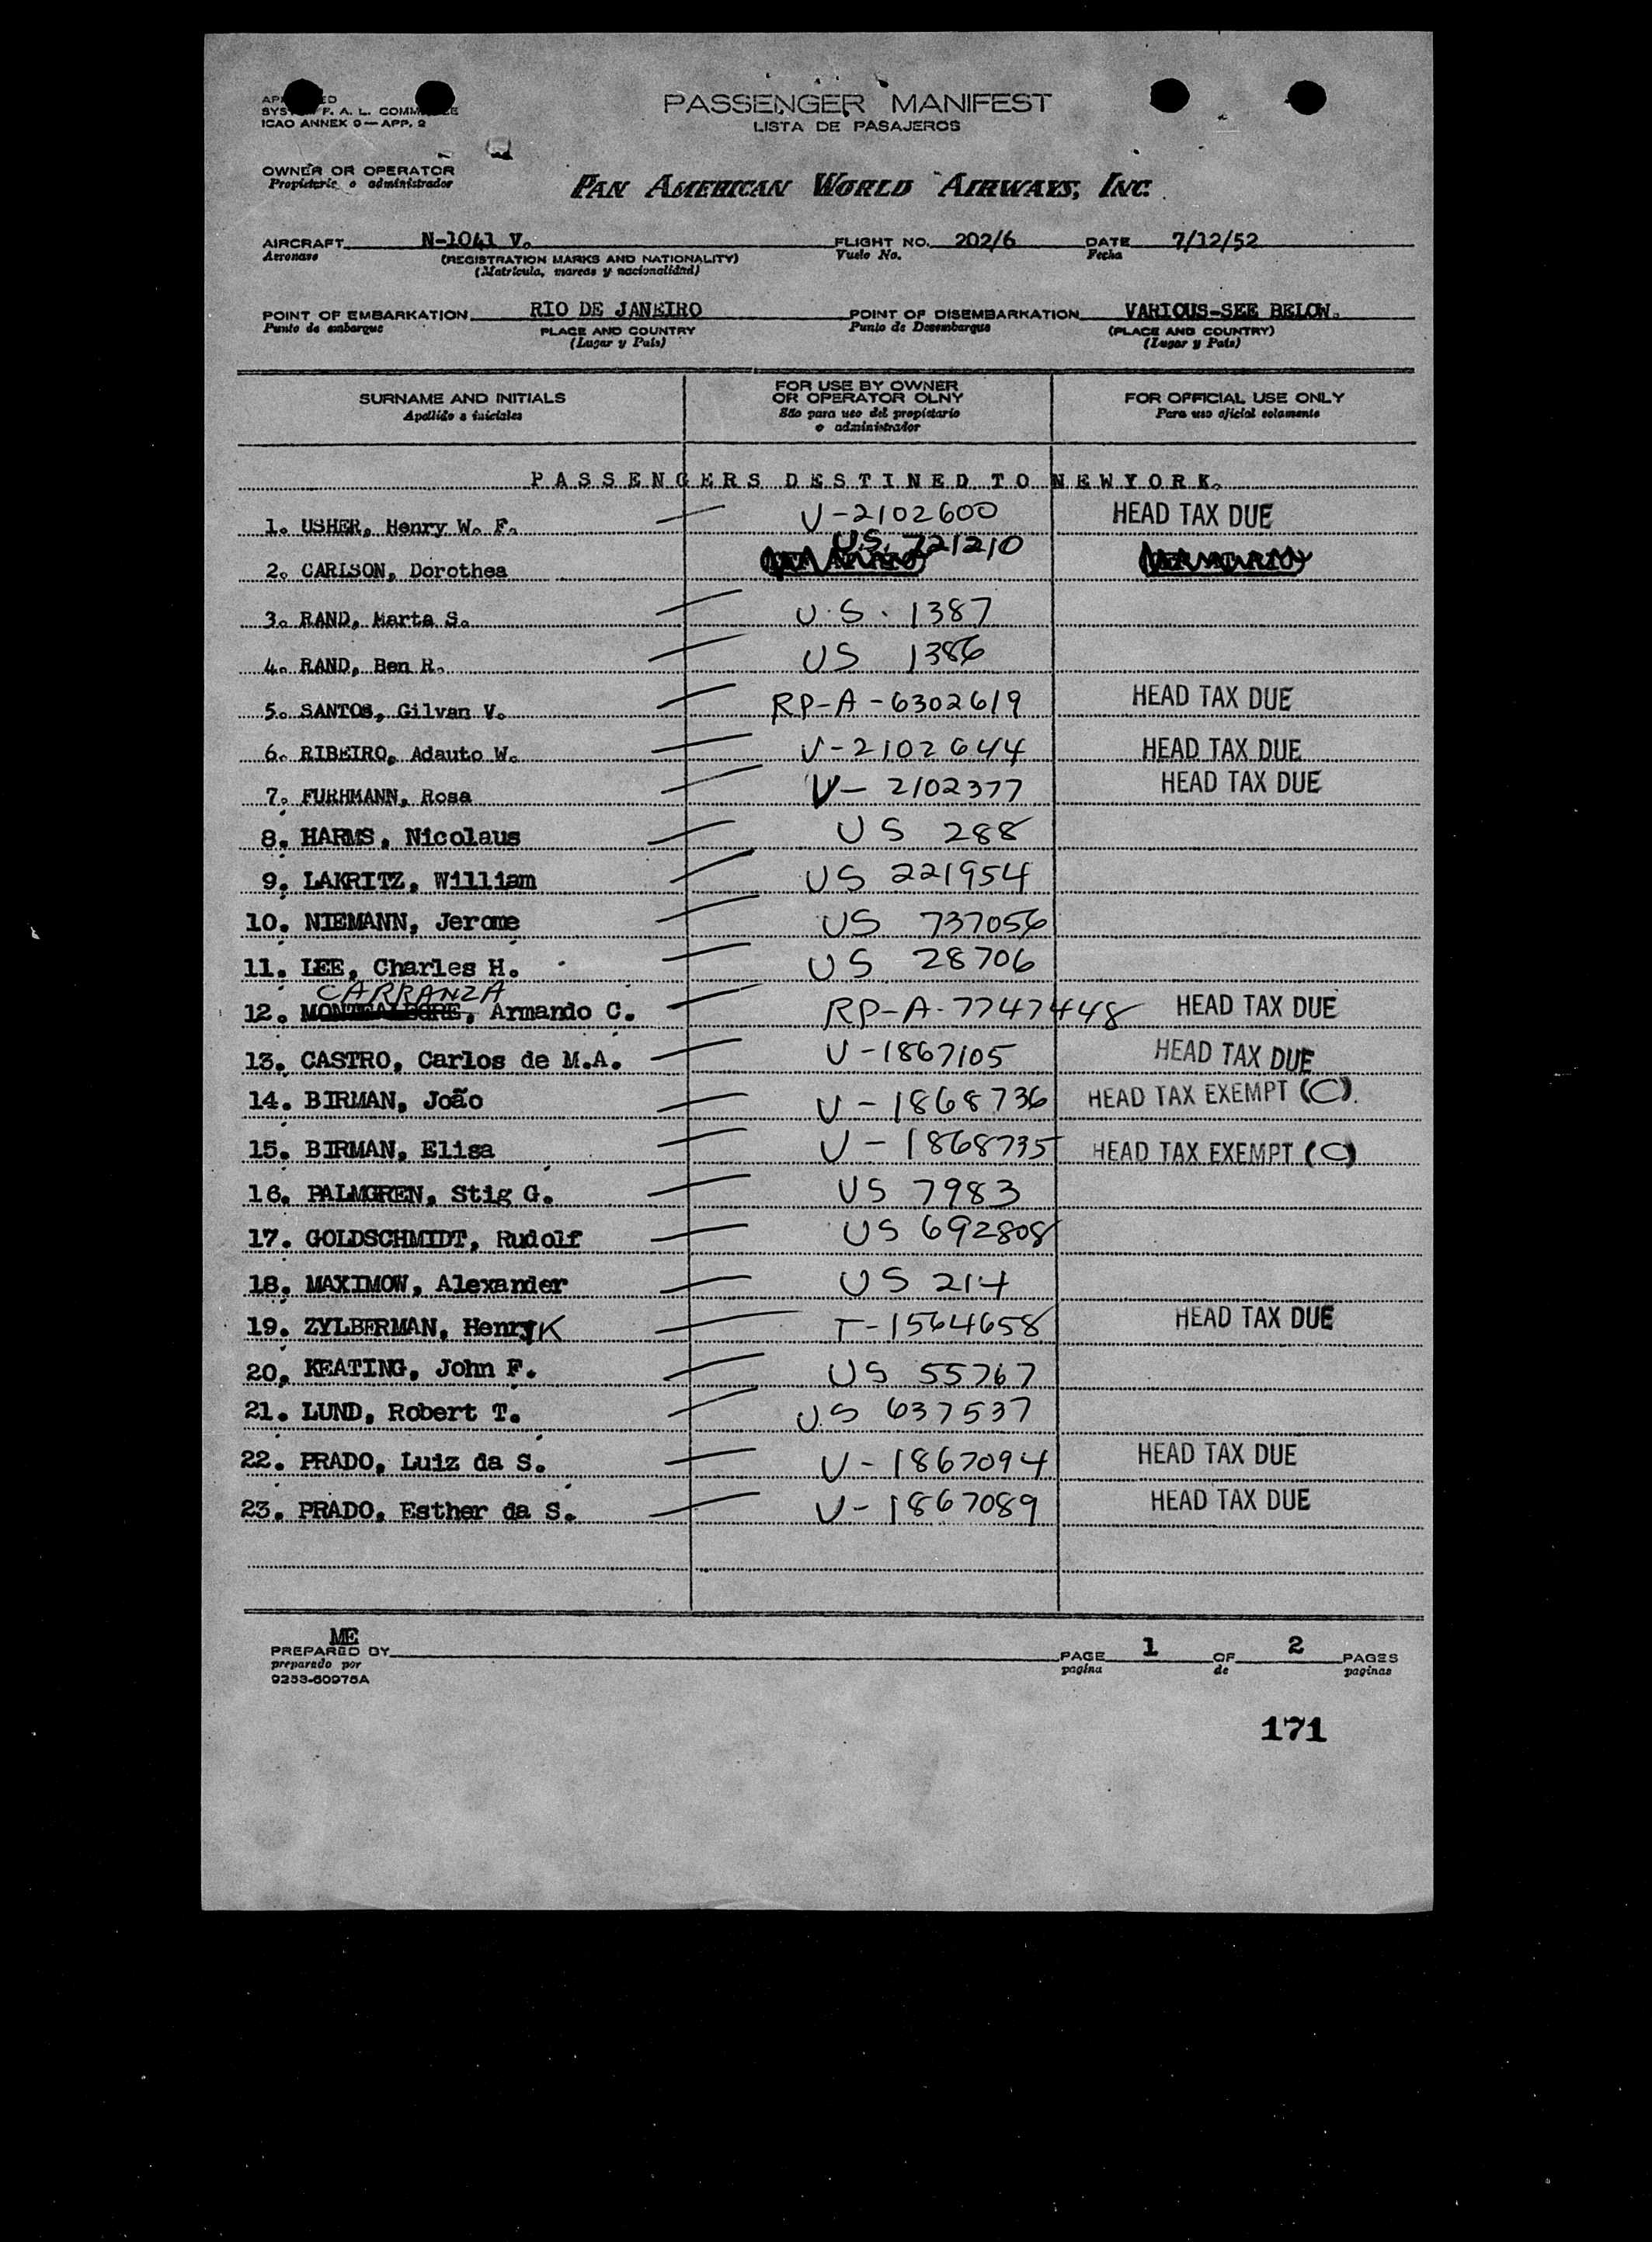 PASSENGER MANIFEST
LISTA DE PASAJEROS
F. A. L.
ICAO ANNEX 9—APP. 2
OWNER OR OPERATOR
Propietario o administrador
PAN AMERICAN WORLD AIRWAYS, INC.
AIRCRAFT N-1041 V. FLIGHT NO. 202/6 DATE 7/12/52
Aeronave (REGISTRATION MARKS AND NATIONALITY) Vuelo No. Fecha
(Matricula, marcas y nacionalidad)
POINT OF EMBARKATION RIO DE JANEIRO POINT OF DISEMBARKATION VARIOUS-SEE BELOW.
Punto de embarque PLACE AND COUNTRY Punto de Desembarque (PLACE AND COUNTRY)
(Lugar y Pais) (Lugar y Pais)
SURNAME AND INITIALS FOR USE BY OWNER OR OPERATOR OLNY FOR OFFICIAL USE ONLY
Apellido e iniciales São para uso del propietario o administrador Para uso oficial solamente
PASSENGERS DESTINED TO NEWYORK.
1. USHER, Henry W. F. V-2102600 HEAD TAX DUE
2. CARLSON, Dorothea U.S. 721210
3. RAND, Marta S. U.S. 1387
4. RAND, Ben R. US 1386
5. SANTOS, Gilvan V. RP-A-6302619 HEAD TAX DUE
6. RIBEIRO, Adauto W. V-2102644 HEAD TAX DUE
7. FURHMANN, Rosa V-2102377 HEAD TAX DUE
8. HARMS, Nicolaus US 288
9. LAKRITZ, William US 221954
10. NIEMANN, Jerome US 737056
11. LEE, Charles H. US 28706
CARRANZA
12. MONTEALEGRE, Armando C. RP-A-7747448 HEAD TAX DUE
13. CASTRO, Carlos de M.A. V-1867105 HEAD TAX DUE
14. BIRMAN, João V-1868736 HEAD TAX EXEMPT (C).
15. BIRMAN, Elisa V-1868735 HEAD TAX EXEMPT (C)
16. PALMGREN, Stig G. US 7983
17. GOLDSCHMIDT, Rudolf US 692808
18. MAXIMOW, Alexander US 214
19. ZYLBERMAN, HenryK T-1564658 HEAD TAX DUE
20. KEATING, John F. US 55767
21. LUND, Robert T. U.S 637537
22. PRADO, Luiz da S. V-1867094 HEAD TAX DUE
23. PRADO, Esther da S. V-1867089 HEAD TAX DUE
ME
PREPARED BY PAGE 1 OF 2 PAGES
preparado por pagina de paginas
9253-60975A
171